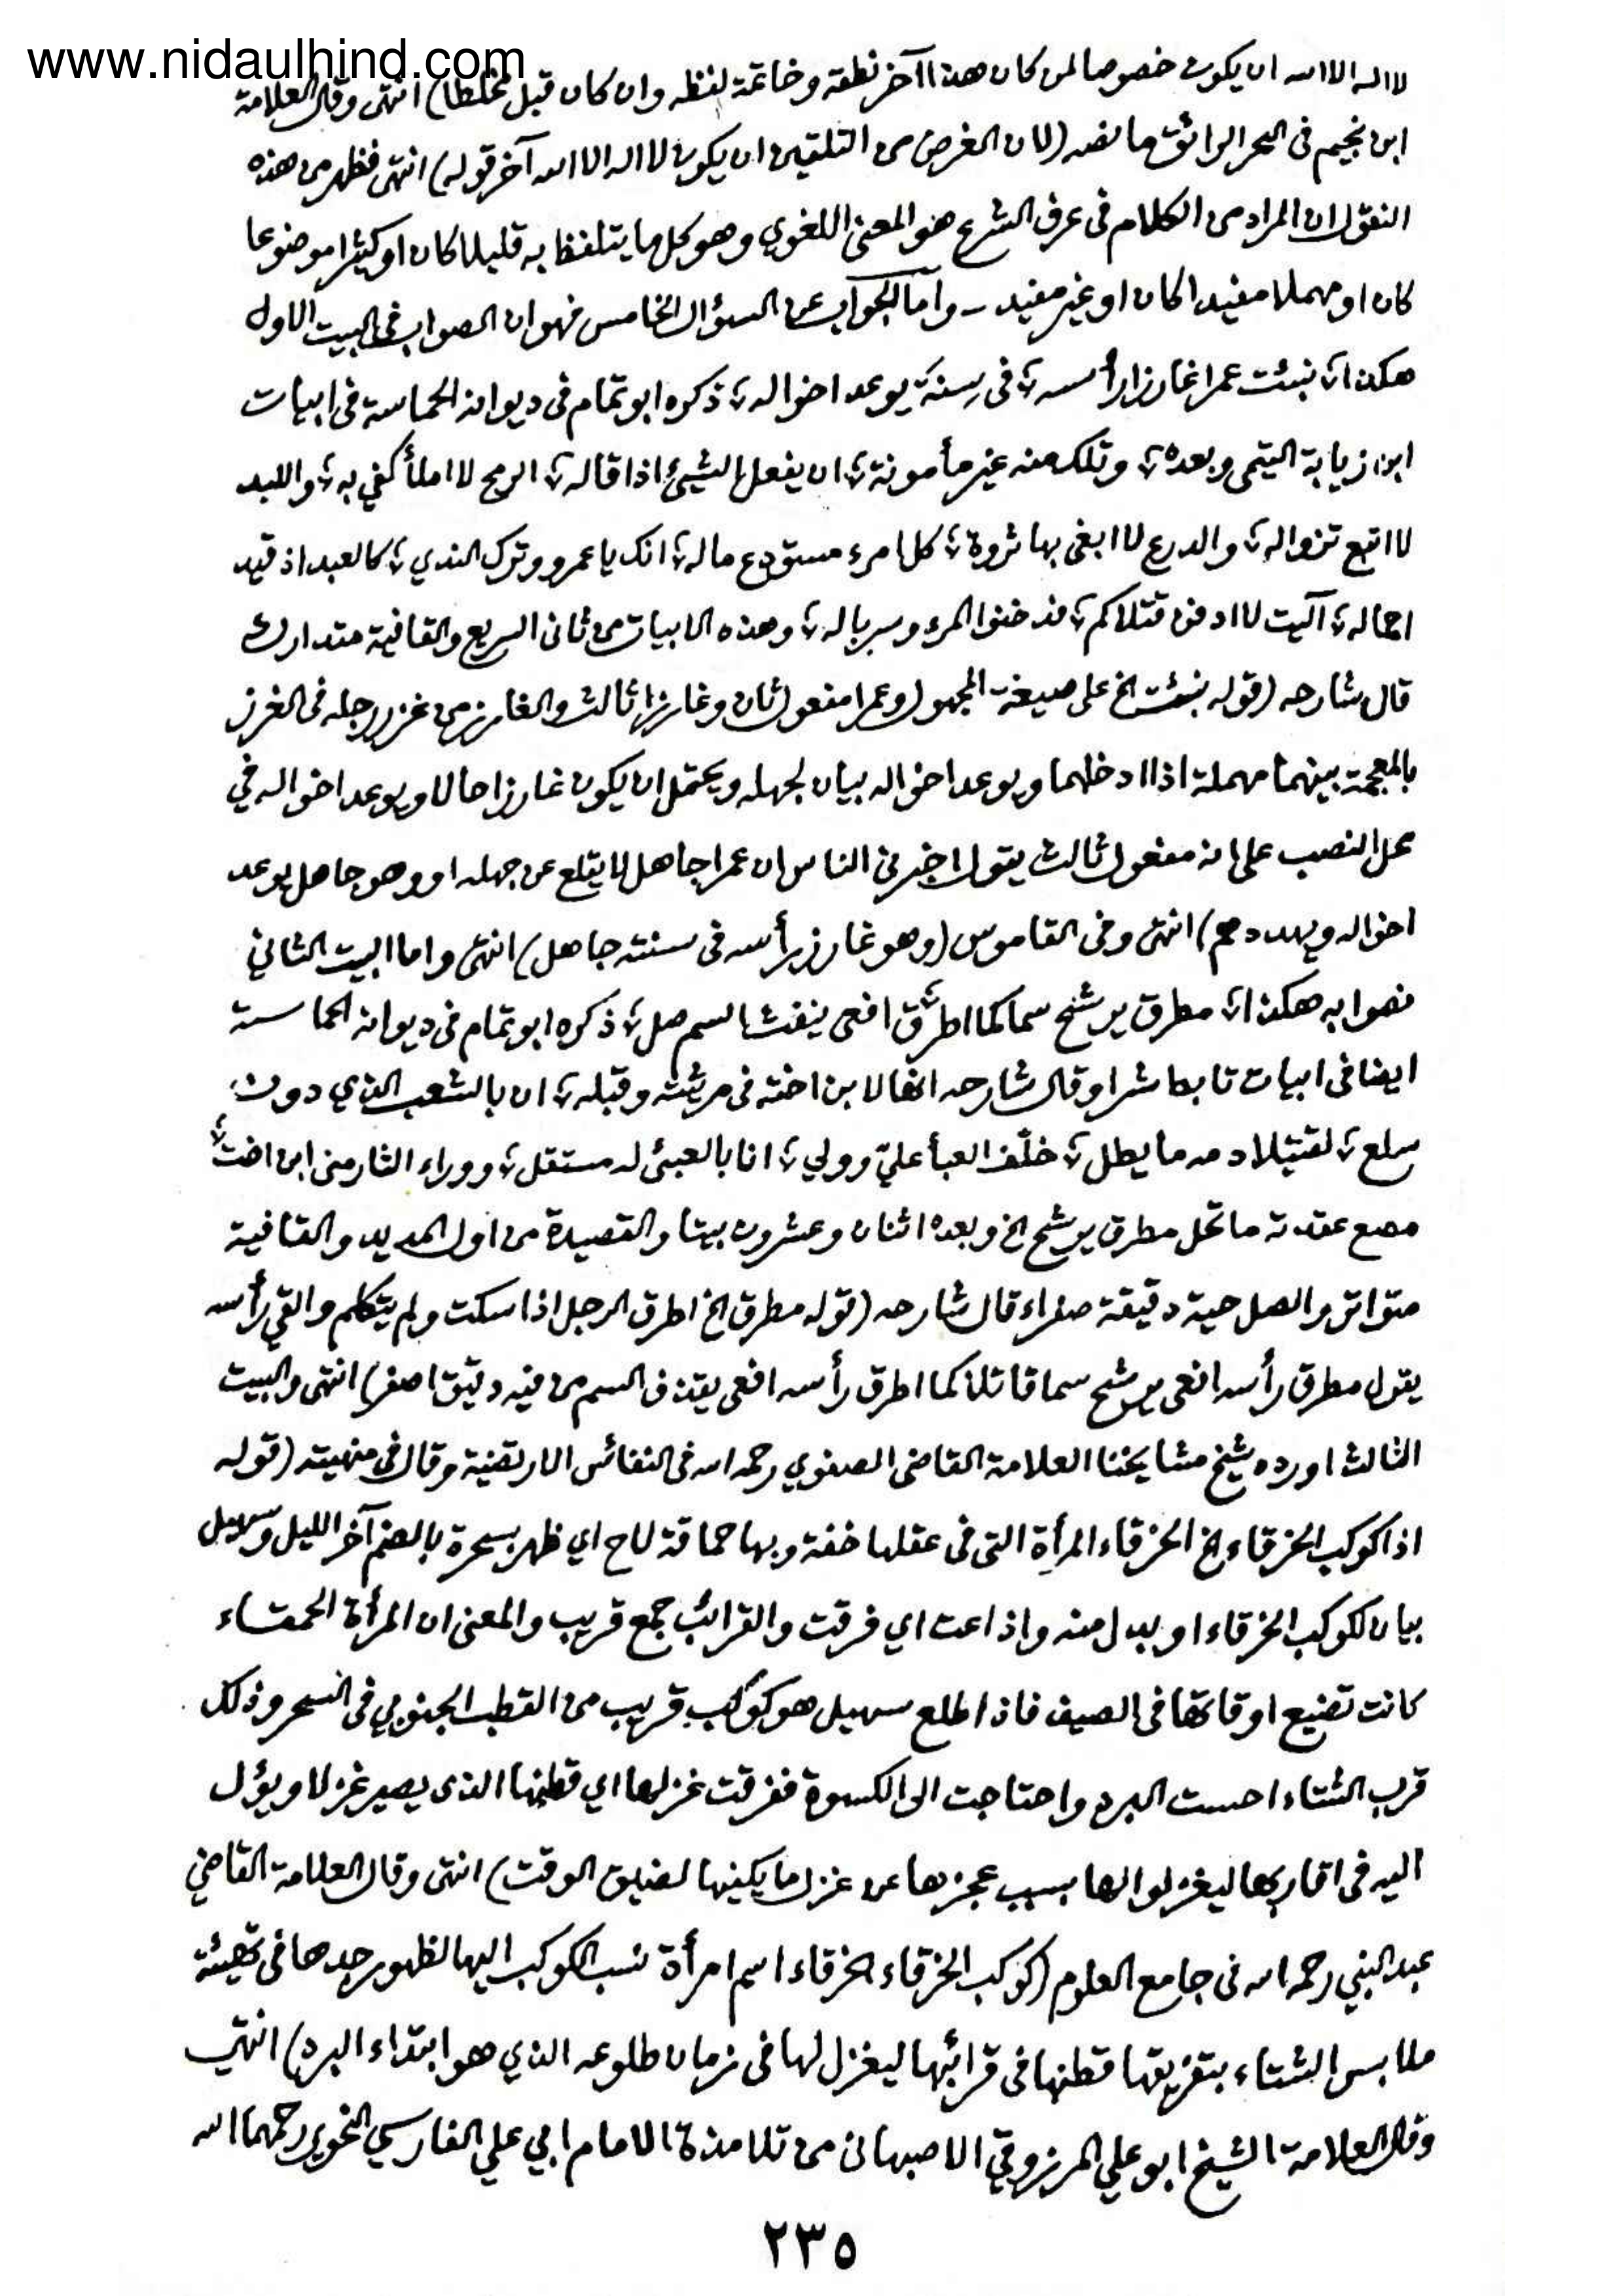 www.nidaulhind.com
لا اله الا الله ان يكون خصوصا لمن كان هذا آخر نطقه وخاتمة لفظه وان كان قبل مخلطا) انتهى وقال العلامة
ابن نجيم فى البحر الرائق ما نصه (لان الغرض من التلقين ان يكون لا اله الا الله آخر قوله) انتهى فظهر من هذه
النقول ان المراد من الكلام فى عرف الشرع هو المعنى اللغوي وهو كل ما يتلفظ به قليلا كان او كثيرا موضوعا
كان او مهملا مفيدا كان او غير مفيد ـ وأما الجواب عن السؤال الخامس فهو ان الصواب فى البيت الاول
هكذا ؛ نبئت عمرا غارزا رأسه ؛ فى سِنَةٍ يوعد اخواله ؛ ذكره ابو تمام فى ديوانه الحماسة فى ابيات
ابن زيابة التيمى وبعده ؛ وتلك منه غير مأمونة ؛ ان يفعل الشيئ اذا قاله ؛ الرمح لا املأ كفي به ؛ واللبد
لا اتبع تزواله ؛ والدرع لا ابغى بها ثروة ؛ كل امرء مستودع ماله ؛ انك يا عمرو وترك الندي ؛ كالعبد اذ قيد
اجماله ؛ آليت لا ادفن قتلاكم ؛ فدخنوا المرء وسرباله ؛ وهذه الابيات من ثانى السريع والقافية متدارك
قال شارحه (قوله نبئت الخ على صيغة المجهول وعمرا مفعول ثان وغارزا ثالث والغارز من غرز رجله فى الغرز
بالمعجمة بينهما مهملة اذا ادخلهما ويوعد اخواله بيان لجهله ويحتمل ان يكون غارزا حالا ويوعد اخواله في
محل النصب على انه مفعول ثالث يقول اخبرنى الناس ان عمرا جاهل لا يقلع عن جهله او وهو جاهل يوعد
اخواله ويهددهم) انتهى وفى القاموس (وهو غارز رأسه فى سنته جاهل) انتهى واما البيت الثاني
فصوابه هكذا ؛ مطرق يرشح سما كما اطرق ؛ افعى ينفث السم صل ؛ ذكره ابو تمام فى ديوانه الحماسة
ايضا فى ابيات تابط شرا وقال شارحه انها لابن اخته فى مرثيته وقبله ؛ ان بالشعب الذي دون
سلع ؛ لقتيلا دمه ما يطل ؛ خلّف العبأ عليّ وولي ؛ انا بالعبئ له مستقل ؛ ووراء الثار منى ابن اخت ؛
مصع عقدته ما تحل مطرق يرشح الخ وبعده اثنان وعشرون بيتا والقصيدة من اول المديد والقافية
متواتر والصل حية دقيقة صفراء قال شارحه (قوله مطرق الخ اطرق الرجل اذا سكت ولم يتكلم والقي رأسه
يقول مطرق رأسه افعى يرشح سما قاتلا كما اطرق رأسه افعى يقذف السم من فيه دقيق اصفر) انتهى والبيت
الثالث اورده شيخ مشايخنا العلامة القاضى الصفوي رحمه الله فى النفائس الارتضية وقال فى منهيته (قوله
اذا كوكب الخرقاء الخ الخرقاء المرأة التى فى عقلها خفة وبها حماقة لاح اي ظهر بسحرة بالضم آخر الليل وسهيل
بيان لكوكب الخرقاء او بدل منه واذاعت اي فرقت والقرائب جمع قريب والمعنى ان المرأة الحمقاء
كانت تضيع اوقاتها فى الصيف فاذا طلع سهيل هو كوكب قريب من القطب الجنوبي فى السحر وذلك
قرب الشتاء احست البرد واحتاجت الى الكسوة ففرقت غزلها اي قطنها الذى يصير غزلا ويؤل
اليه فى اقاربها ليغزلوا لها بسبب عجزها عن غزل ما يكفيها لضيق الوقت) انتهى وقال العلامة القاضي
عبد النبي رحمه الله فى جامع العلوم (كوكب الخرقاء الخرقاء اسم امرأة نسب الكوكب اليها لظهور جدها فى تهيئة
ملابس الشتاء بتفريقها قطنها فى قرائبها ليغزل لها فى زمان طلوعه الذي هو ابتداء البرد) انتهى
وقال العلامة الشيخ ابو علي المرزوقي الاصبهانى من تلامذة الامام ابي علي الفارسي النحوي رحمهما الله
٢٣٥